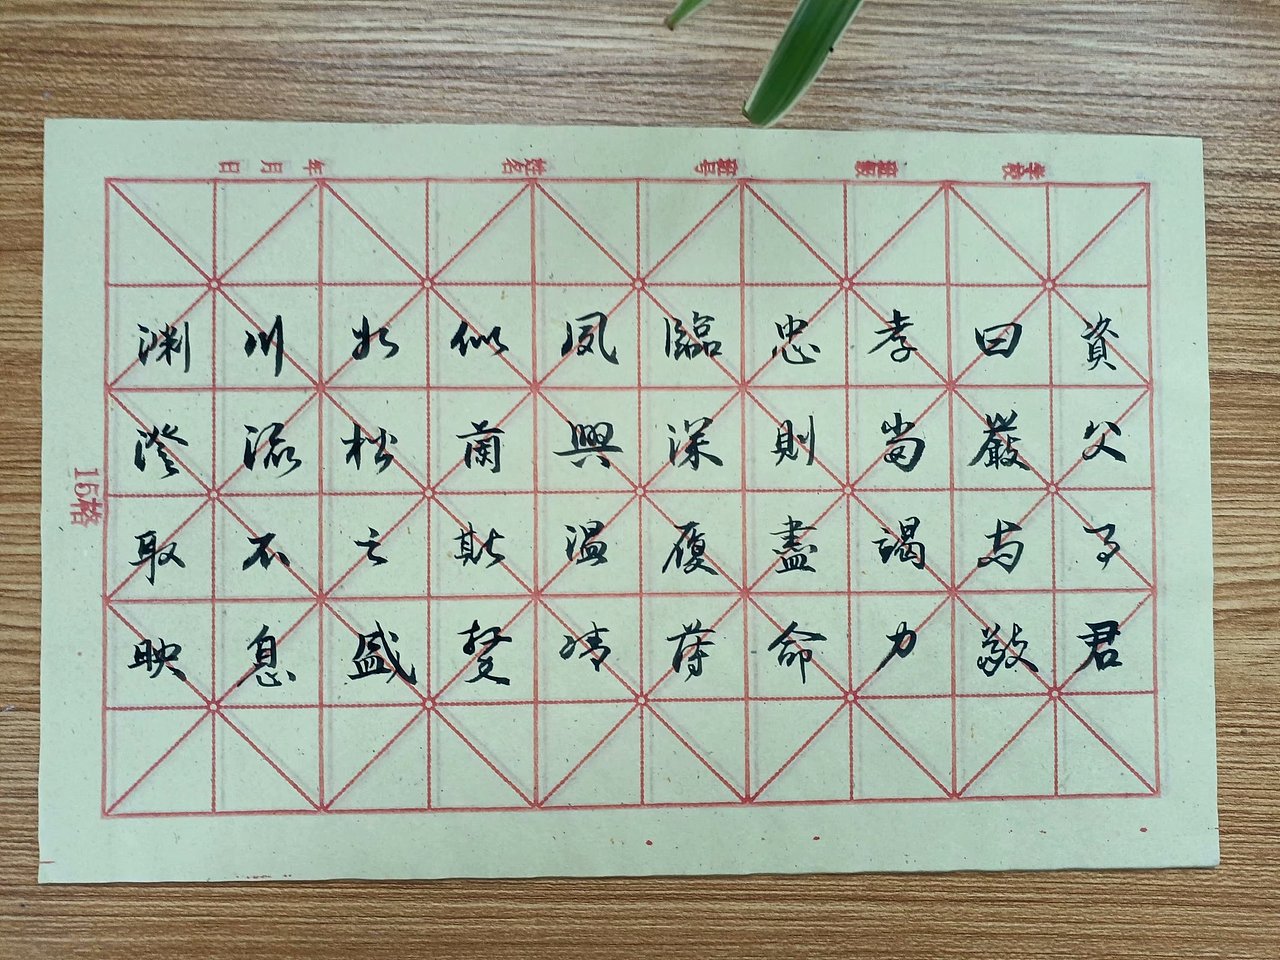 資父事君
曰嚴與敬
孝當竭力
忠則盡命
臨深履薄
夙興溫凊
似蘭斯馨
如松之盛
川流不息
淵澄取映
學校
班級
編号
姓名
年 月 日
15格